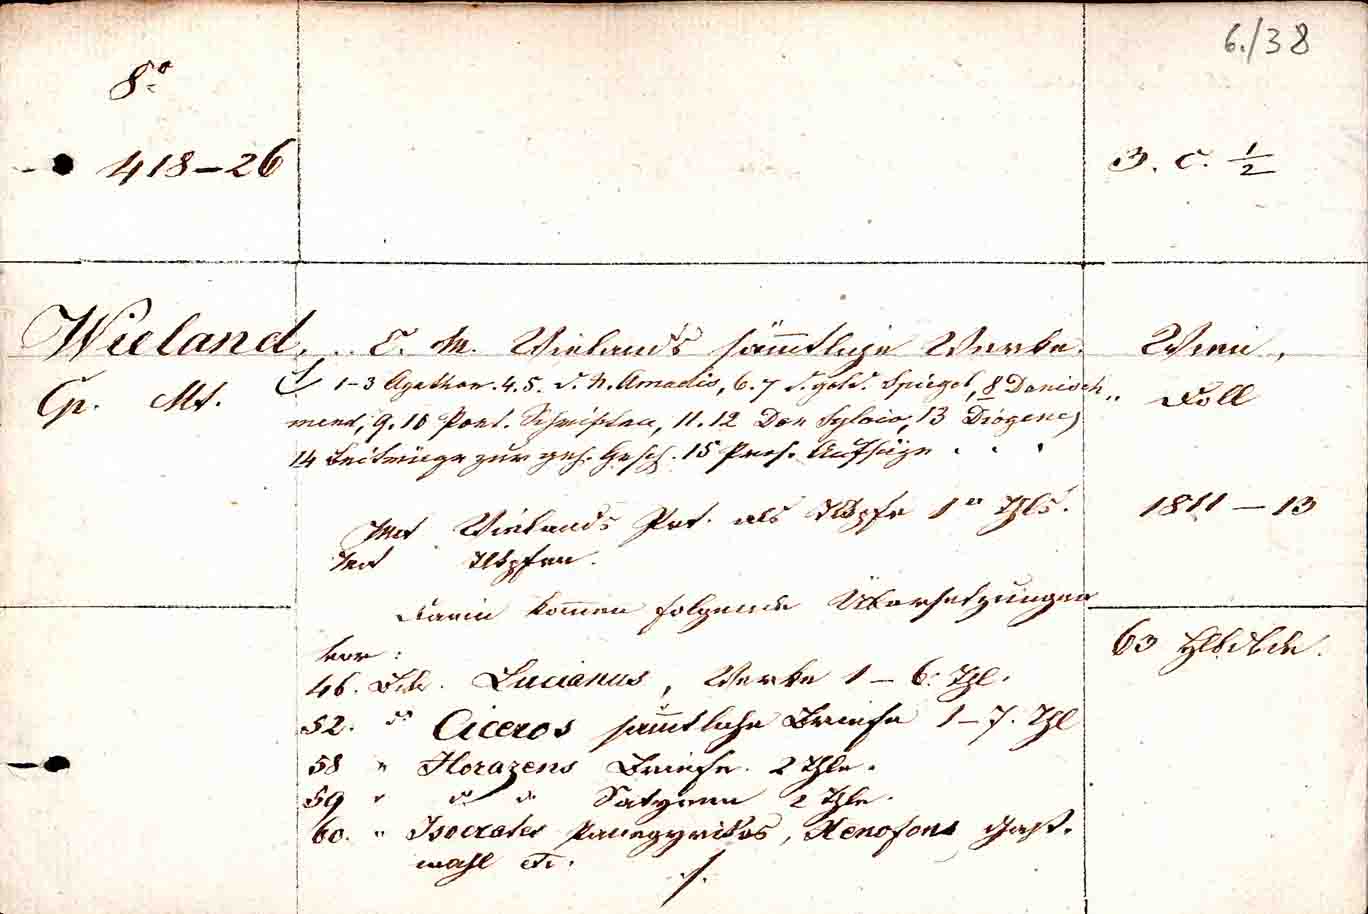 6./38
8°
418–26
3. C. 1/2
Wieland,
C. M. Wielands sämmtliche Werke.
Wien,
Cp. Mt.
1-3 Agathon. 4.5. d. n. Amadis, 6.7 d. gold. Spiegel, 8 Danisch
Doll
mend, 9.10 Poet. Schriften, 11.12 Don Sylvio, 13 Diogenes
14 Beiträge zur geh. Gesch. 15 Pros. Aufsäze . . .
Mit Wielands Prt. als
1811–13
Mit
Darin kommen folgende Übersetzungen
vor:
63 Hlbde.
46. Bde. Lucianus, Werke 1–6. Thl.
52. " Ciceros sämmtliche Briefe 1–7. Thl
58 " Horazens Briefe. 2 Thle.
59 " " " Satyren 2 Thle.
60. " Isocrates Panegyrikos, Xenofons Gast-
mahl etc. ./.